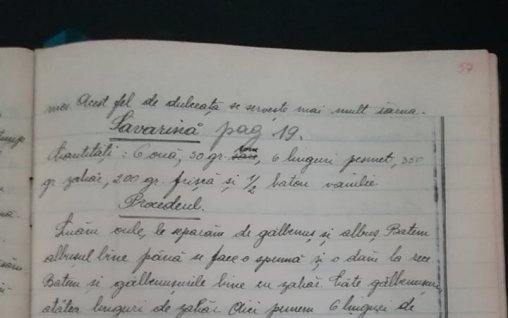 57
mos. Acest fel de dulceață se servește mai mult iarna.
Savarină pag 19.
Cantități: 6 ouă, 50 gr. rom, 6 linguri pesmet, 350
gr. zahăr, 200 gr. frișcă și 1/2 baton vanilie
Procedeul.
Luăm oule, le separăm de gălbenuș și albuș. Batem
albușul bine până se face o spumă și o dăm la rece
Batem și gălbenușurile bine cu zahăr. Câte gălbenușuri
atâtea linguri de zahăr. Aici punem 6 linguri de